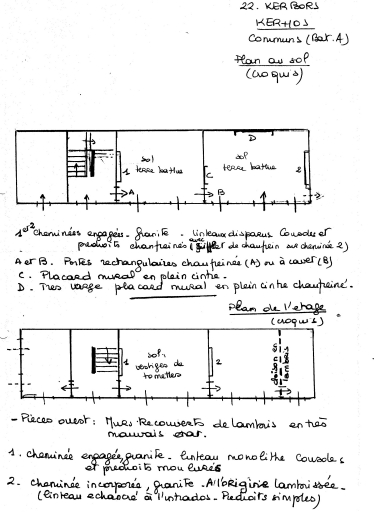 22. KERBORS
KERHOS
Communs (Bat. A)
Plan au sol
(croquis)
D
1
sol
terre battue
sol
terre battue
2
C
A
B
1 et 2 cheminées engagées - granite - linteaux disparus Consoles et
piédroits chanfreinés (avec de chanfrein sur cheminée 2)
A et B. Portes rectangulaires chanfreinée (A) ou à cavet (B)
C. Placard mural en plein cintre -
D. Très large placard mural en plein cintre chanfreiné.
Plan de l'etage
(croquis)
1
sol:
vestiges de
tomettes
2
cloison en
lambris
- Pièces ouest: Murs Recouverts de lambris en très
mauvais etat.
1. cheminée engagée, granite - linteau monolithe Consoles
et piedroits moulurés
2. Cheminée incorporée, granite - A l'origine lambrissée -
(linteau echancré à l'intrados - Piedroits simples)